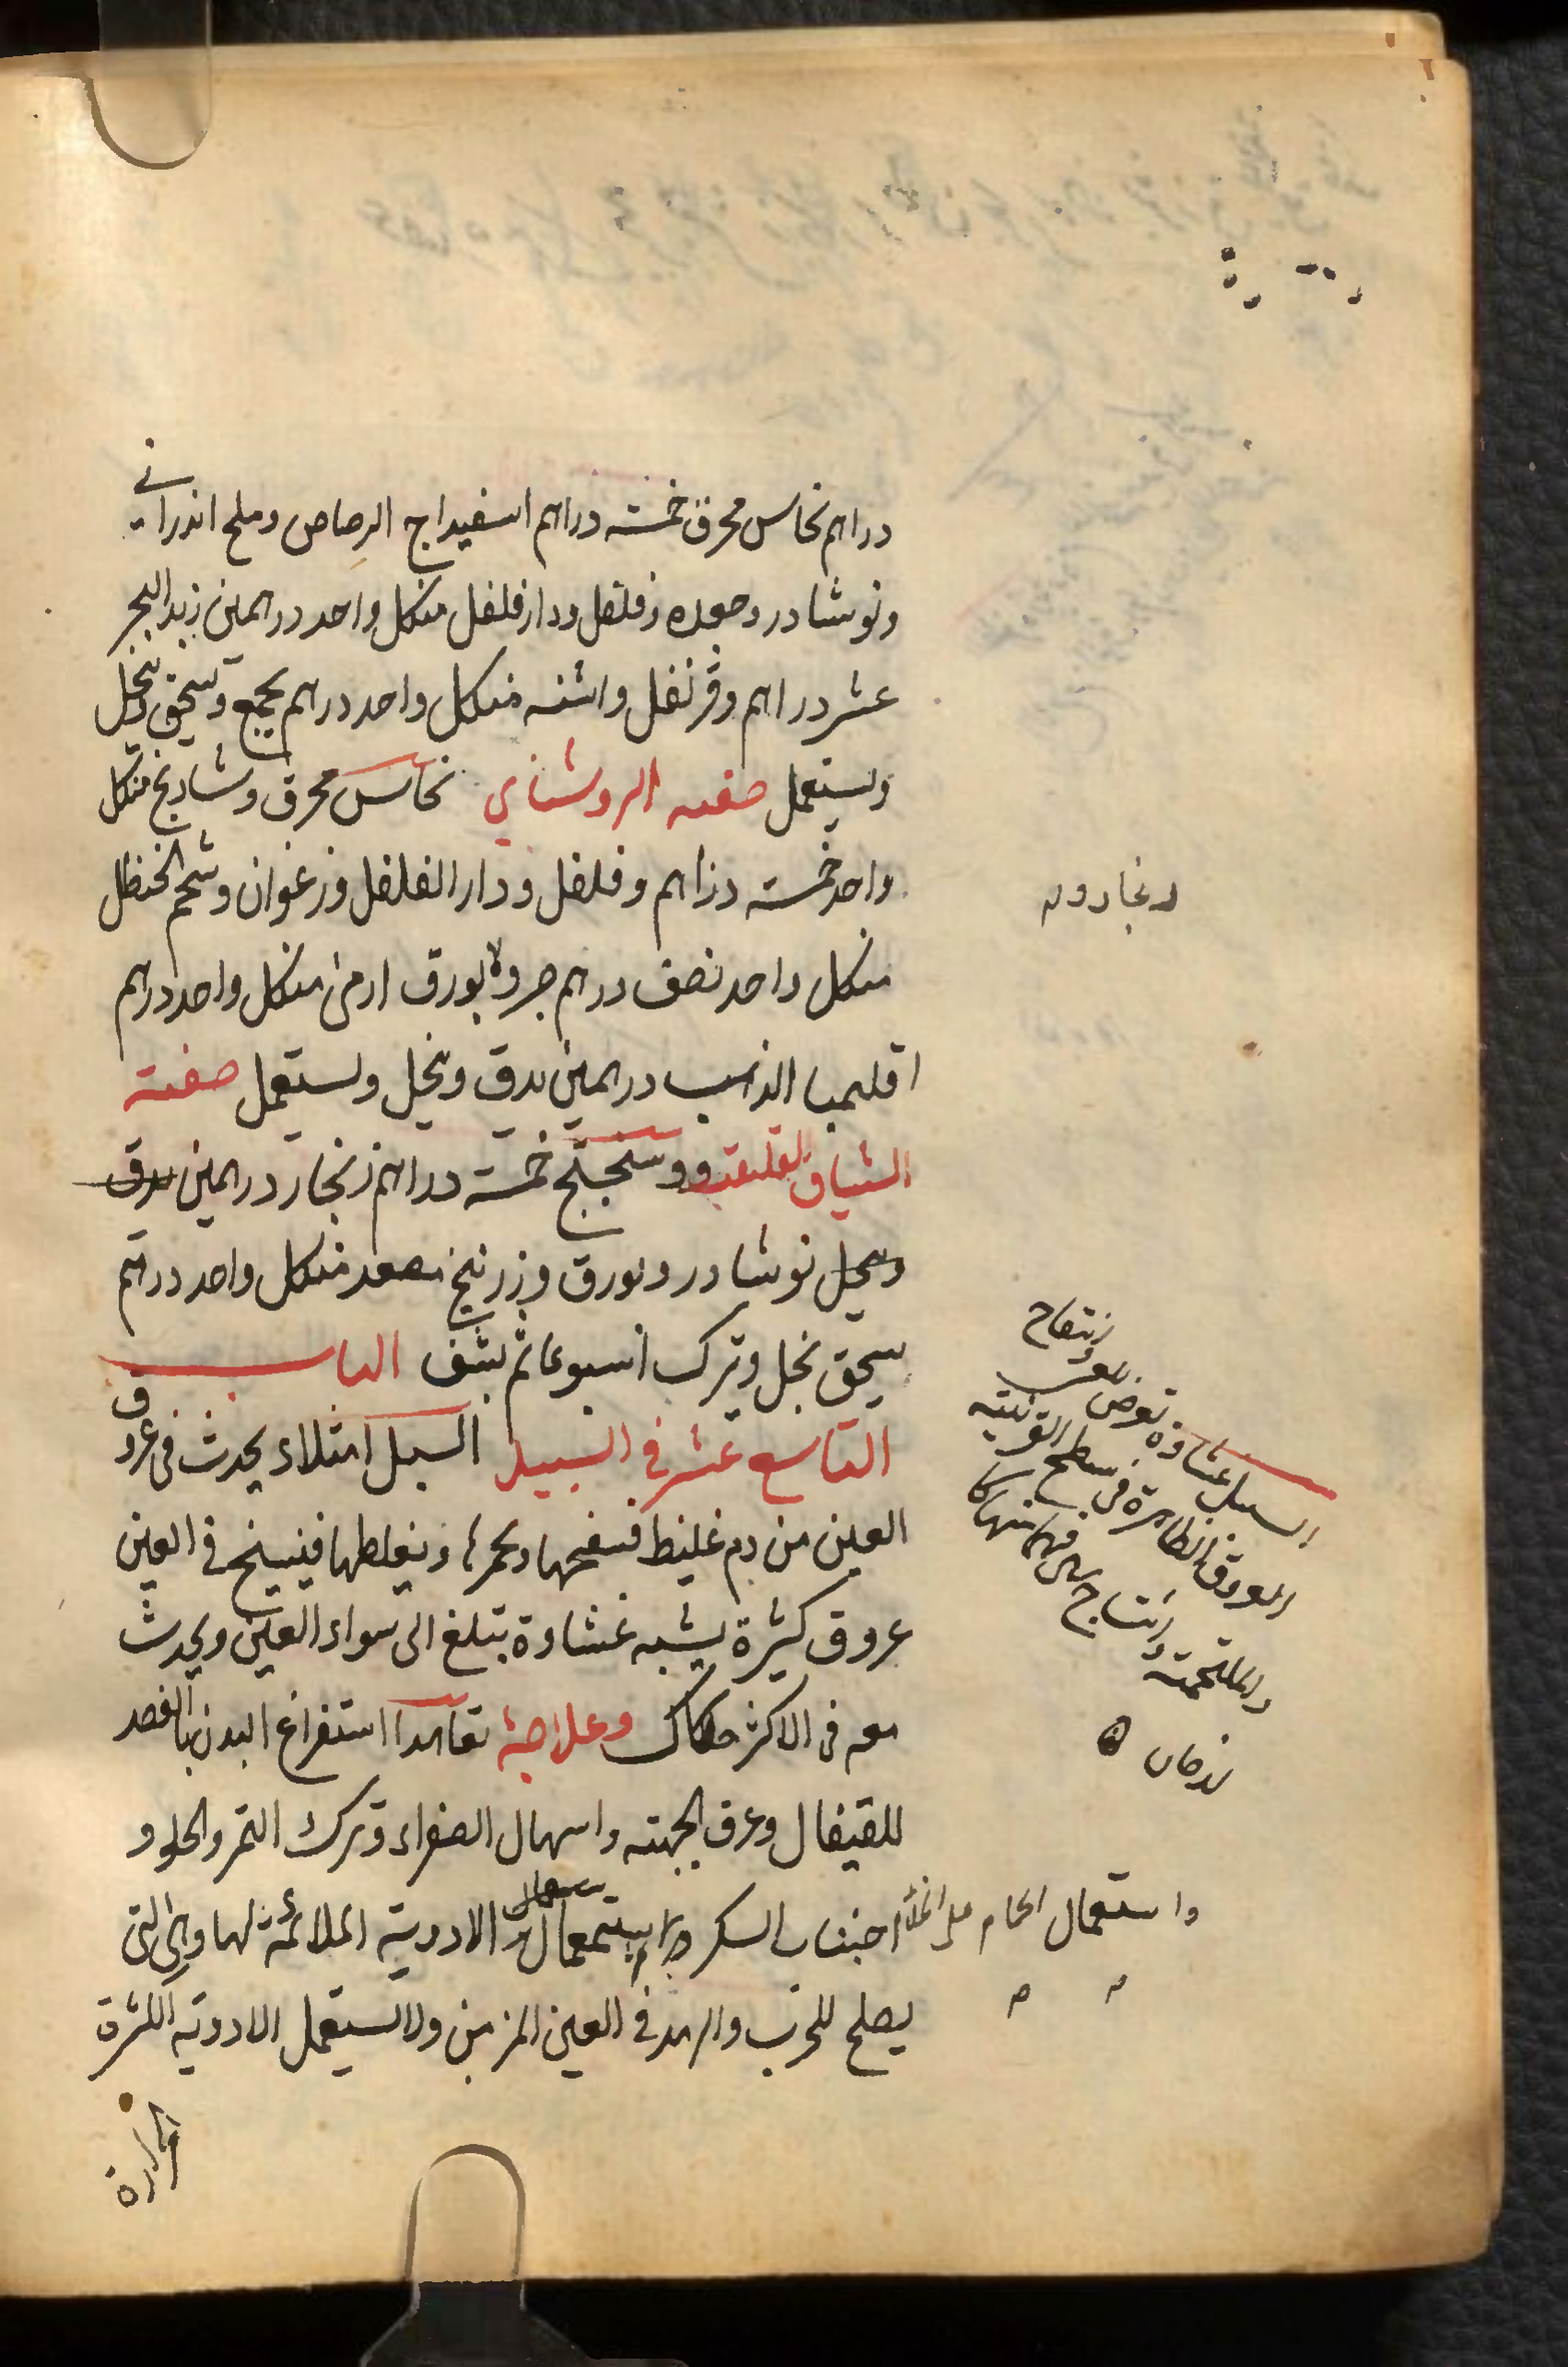 دراهم نحاس محرق خمسه دراهم اسفيداج الرصاص وملح اندراني
ونوشادر وجعده وفلفل ودارفلفل منكل واحد درهمين زبد البحر
عشر دراهم وقرنفل واشنه منكل واحد درهم يجمع ويسحق وينخل
ويستعمل صفه الروشناي نحاس محرق وشادنج منكل
واحد خمسه دراهم وفلفل ودارالفلفل وزعفران وشحم الحنظل
منكل واحد نصف درهم بورق ارمنى منكل واحد درهم
اقليميا الذهب درهمين يدق وينخل ويستعمل صفته
الشياف خمسة دراهم زنجار درهمين يدق
وينخل نوشادر وبورق وزرنيخ مصعد منكل واحد درهم
يسحق بخل وترك اسبوعا ثم يشف الباب
التاسع عشر في السبل السبل امتلاء يحدث فى عروق
العين من دم غليظ فينفخها ويحمرها ويغلظها فينسج فى العين
عروق كثيرة يشبه غشاوة تبلغ الى سواد العين ويحدث
معه فى الاكثر حكاك وعلاجه تعاهدا استفراغ البدن بالفصد
للقيفال وعرق الجبهته واسهال الصفراء وترك التمر والحلو و
اجتناب السكر واستعمال الادوية الملائمة لها وهى التى
يصلح للجرب والرمد فى العين المزمن ولا يستعمل الادوية الكثيرة
الحرارة
السبل غشاوة تعرض للعين انتفاخ
العروق الظاهرة فى سطح القرنيته
والملتحمته وانتساج فيما بينهما كا
لدخان ه
واستعمال الحمام على الخلا